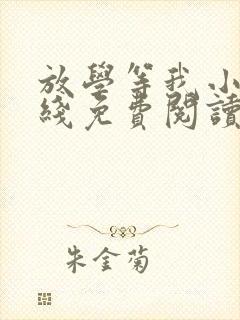 放學等我小
綫免費閱讀
朱金菊